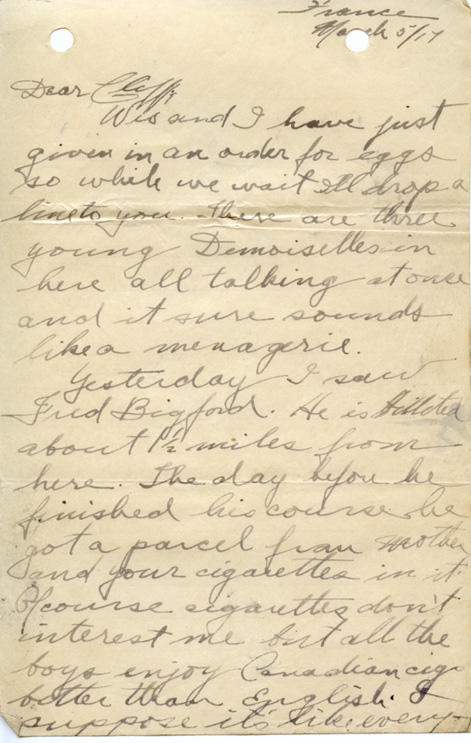 France
March 5/17
Dear Cliff:
Wis and I have just
given in an order for eggs
so while we wait I'll drop a
line to you. There are three
young Demoiselles in
here all talking at once
and it sure sounds
like a menagerie.
Yesterday I saw
Fred Bigford. He is billeted
about 1½ miles from
here. The day before he
finished his course he
got a parcel from Mother
and your cigarettes in it.
Of course cigarettes don't
interest me but all the
boys enjoy Canadian cig
better than English. I
suppose it's like every-